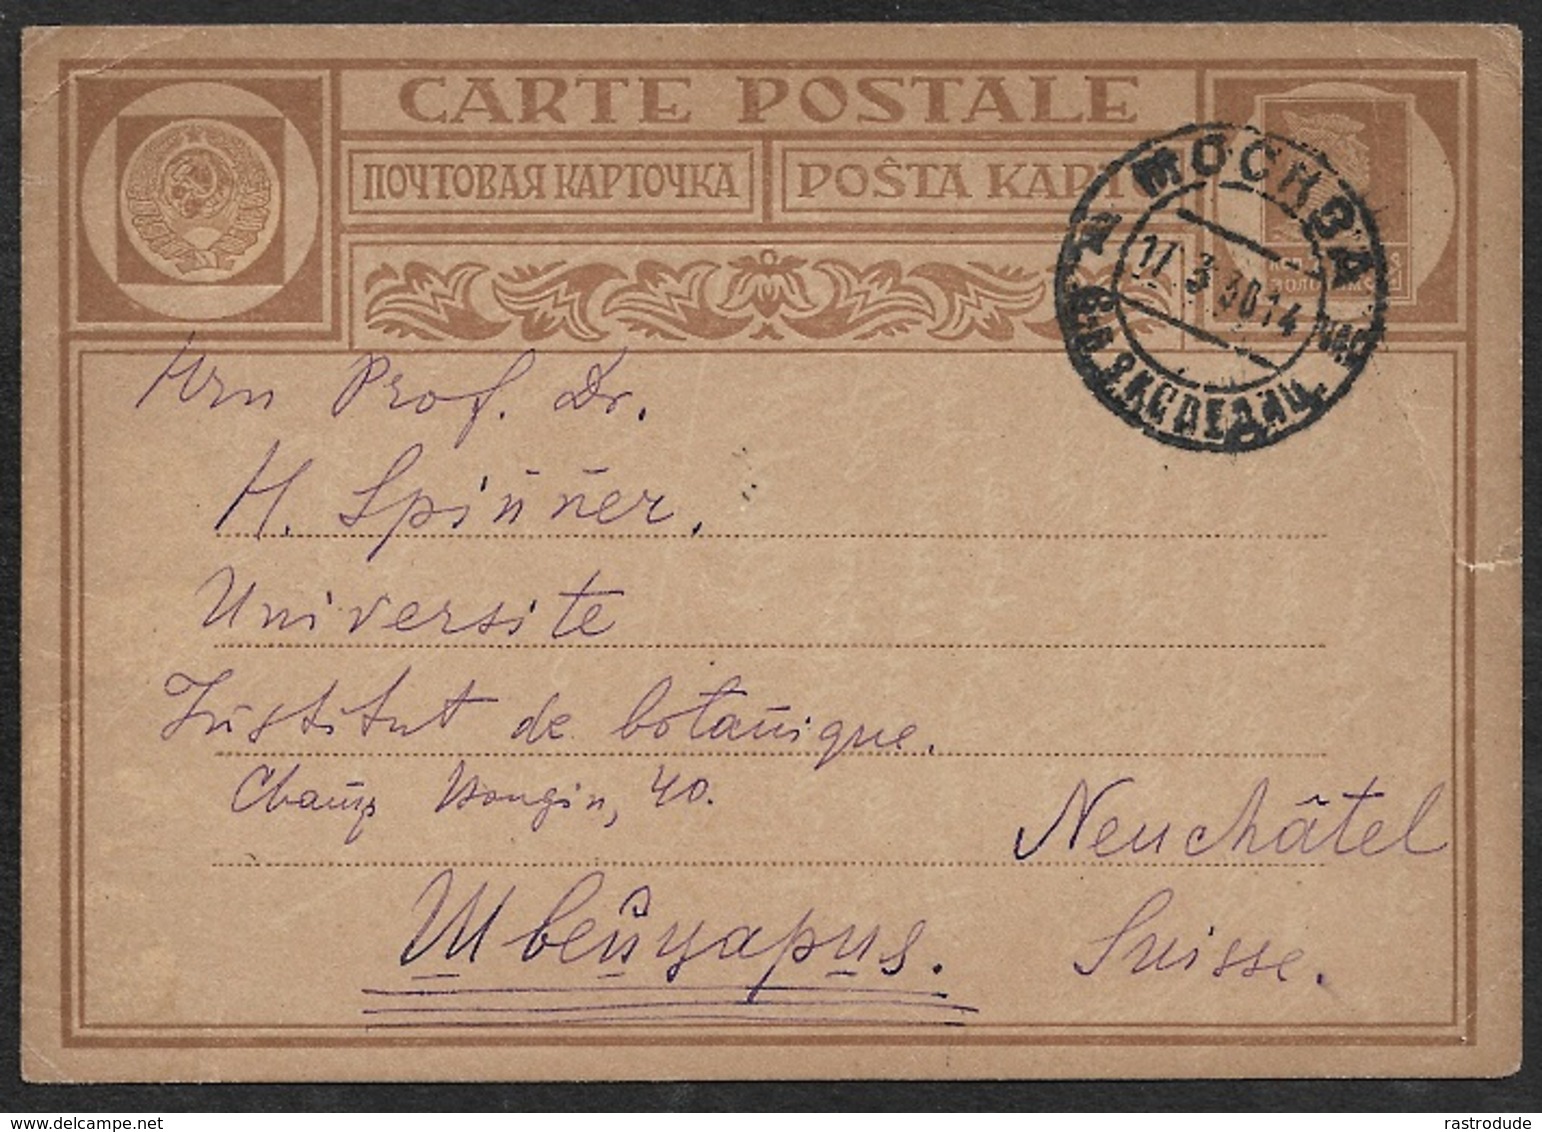 CARTE POSTALE
ПОЧТОВАЯ КАРТОЧКА
POŜTA KARTO
МОСКВА
17.3.30.14 ЧАС
ЭКСПЕДИЦ.
Hrn Prof. Dr.
H. Spinner.
Universite
Institut de botanique.
Champ Bougin, 40.
Neuchâtel
Швейцария.
Suisse.
rastrodude